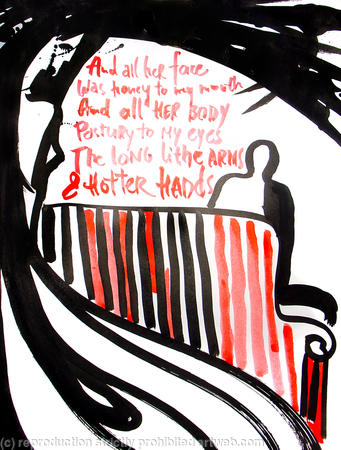 And all her face
Was honey to my mouth
And all HER BODY
Pastury to My eyes
The LONG lithe ARMS
& HOTTER HADDS
(c) reproduction strictly prohibited artweb.com